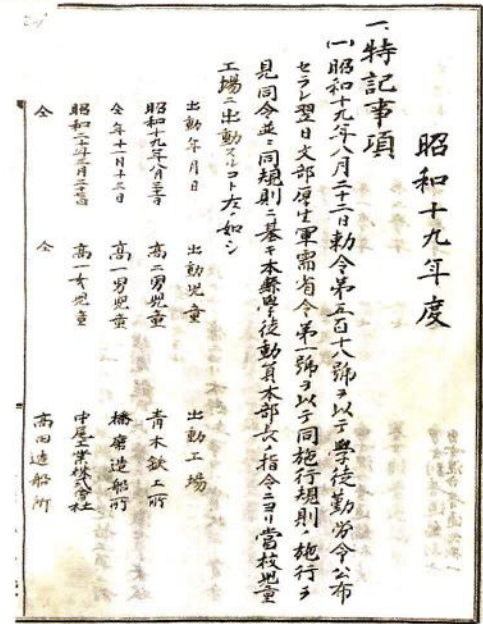 昭和十九年度
一、特記事項
(一)昭和十九年八月二十二日勅令第五百十八號ヲ以テ學徒勤労令公布
セラレ翌日文部厚生軍需省令第一號ヲ以テ同施行規則ノ施行ヲ
見同令並ニ同規則ニ基キ本縣學徒動員本部長ノ指令ニヨリ當校児童
工場ニ出動スルコト左ノ如シ
出動年月日 出動児童 出動工場
昭和十九年八月 高二男児童 青木鉄工所
仝年十一月十三日 高一男児童 播磨造船所
昭和二十年三月 高一女児童 中尾工業株式會社
仝 仝 高田造船所